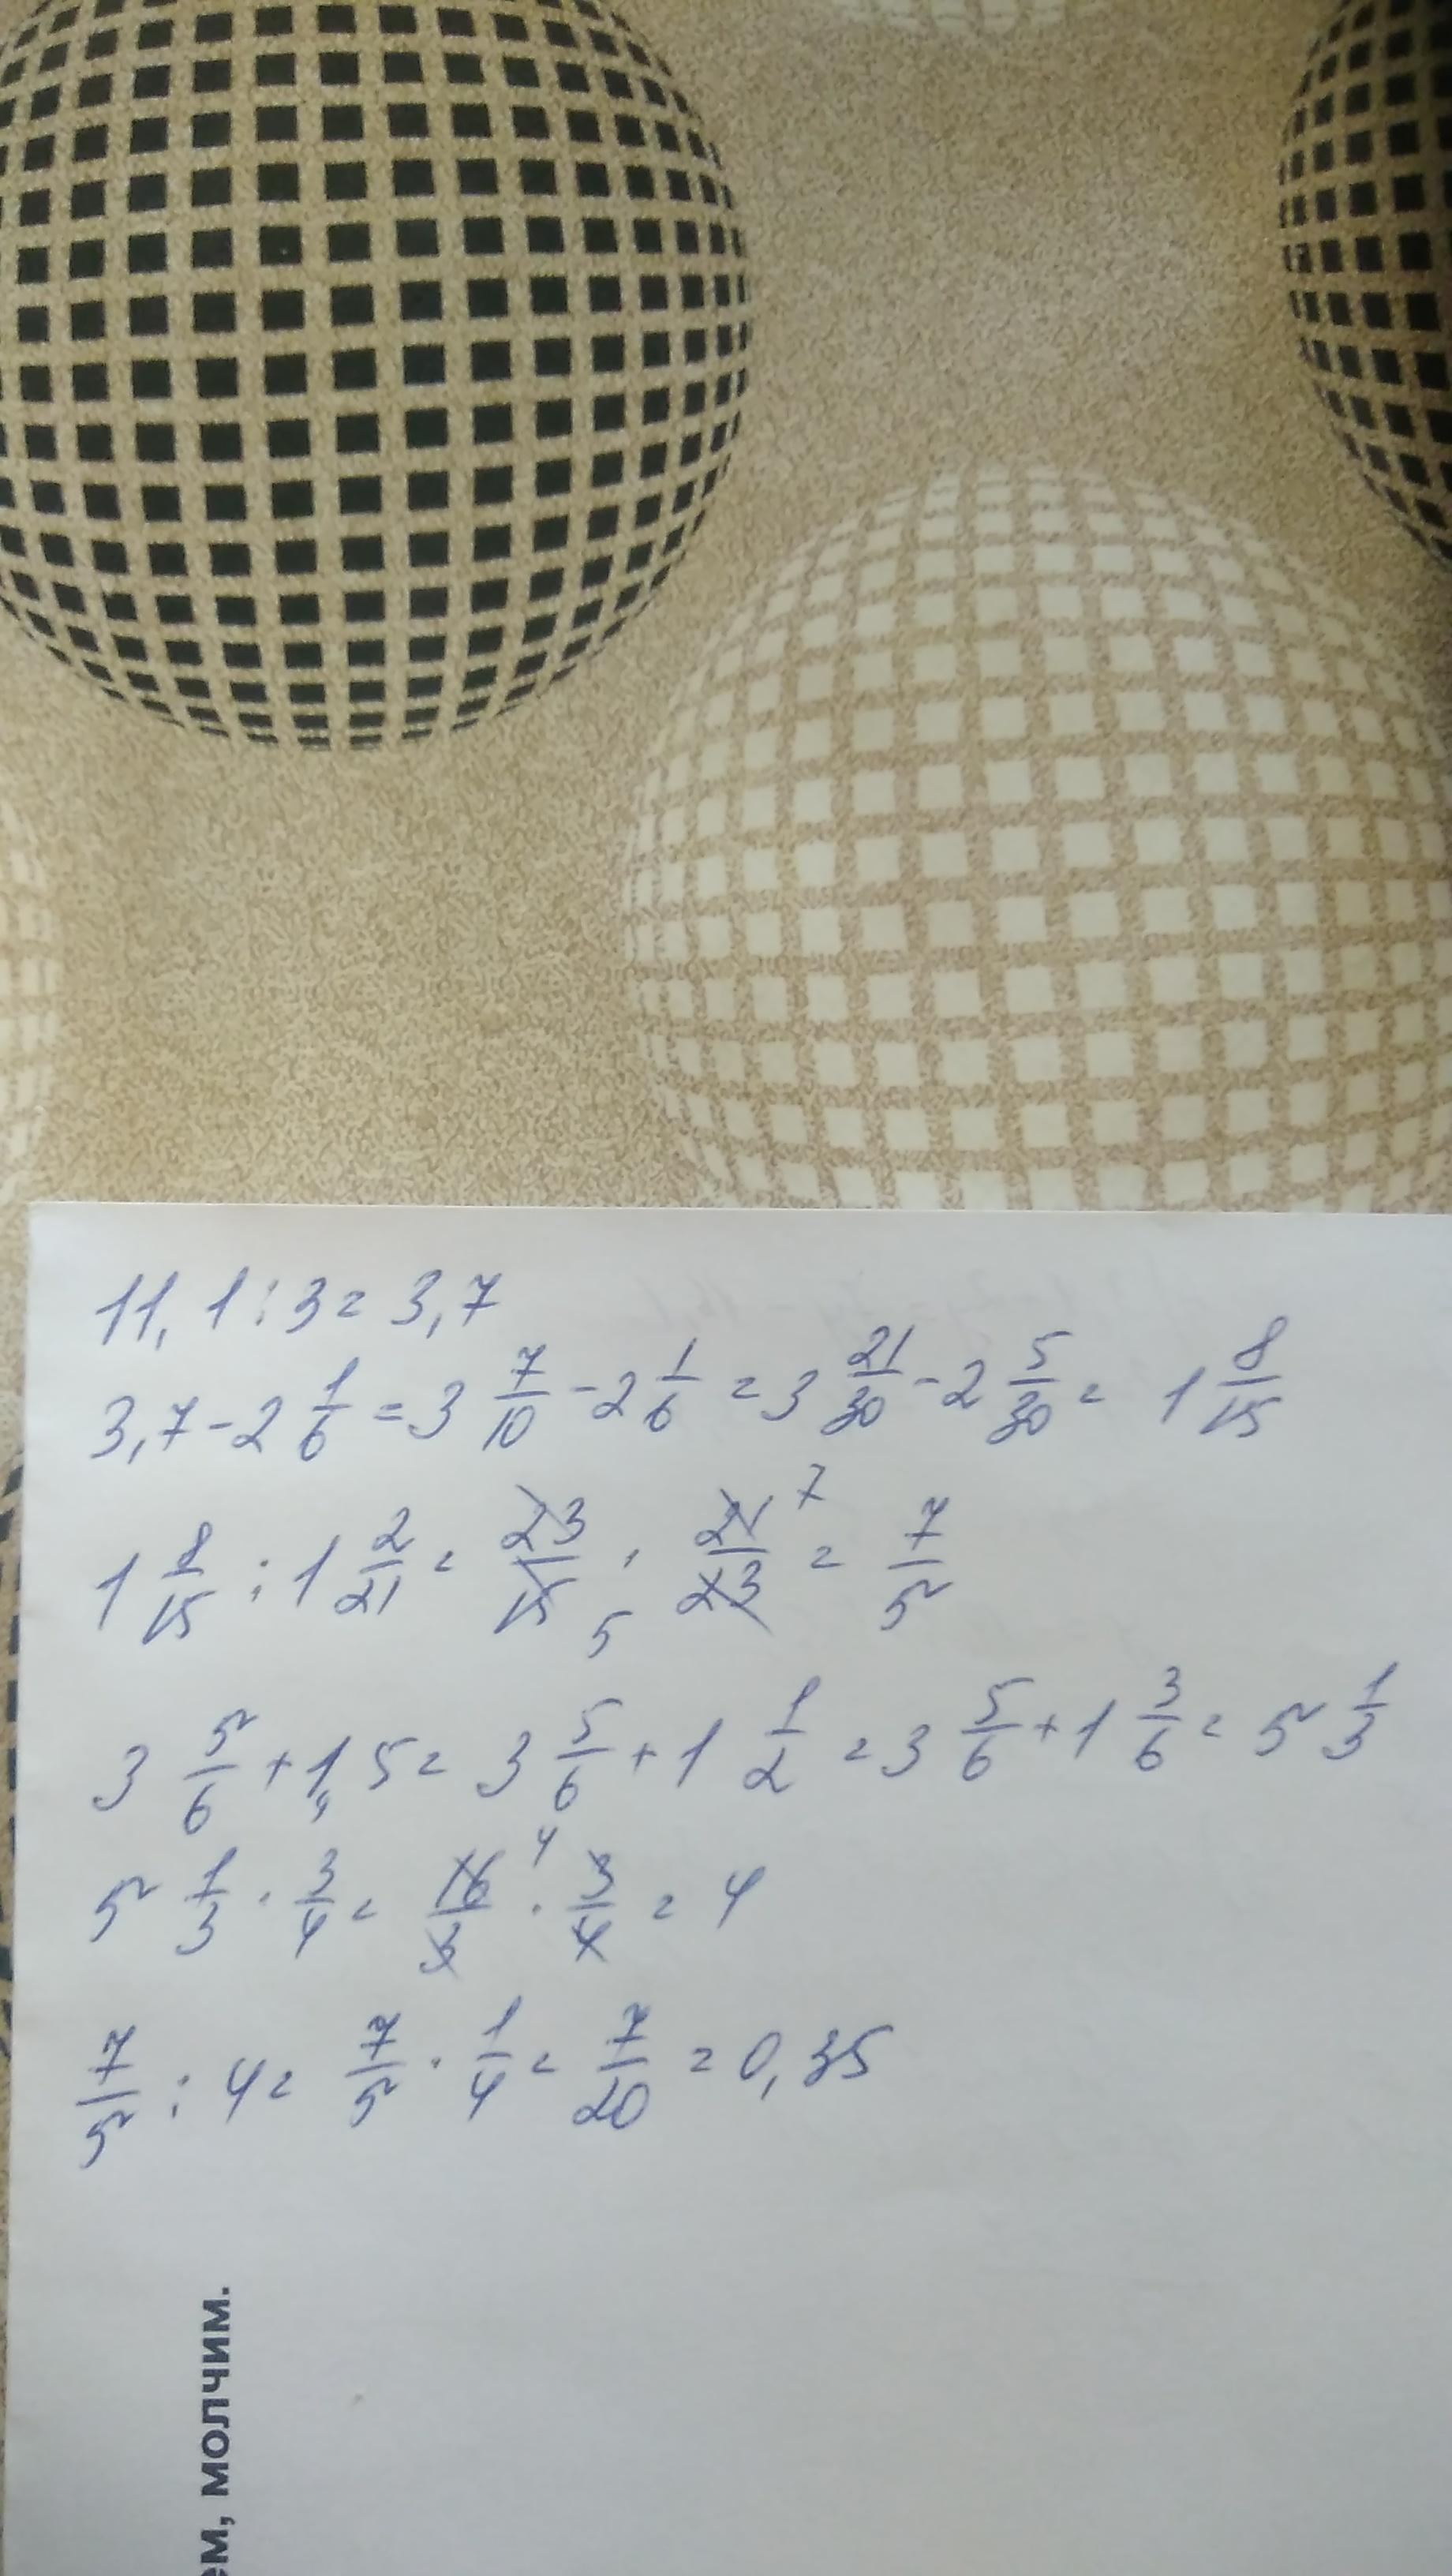 11,1 : 3 = 3,7
3,7 - 2 1/6 = 3 7/10 - 2 1/6 = 3 21/30 - 2 5/30 = 1 8/15
1 8/15 : 1 2/21 = 23/15 5 · 21/23 7 = 7/5
3 5/6 + 1,5 = 3 5/6 + 1 1/2 = 3 5/6 + 1 3/6 = 5 1/3
5 1/3 · 3/4 = 16/3 4 · 3/4 = 4
7/5 : 4 = 7/5 · 1/4 = 7/20 = 0,35
ем, молчим.